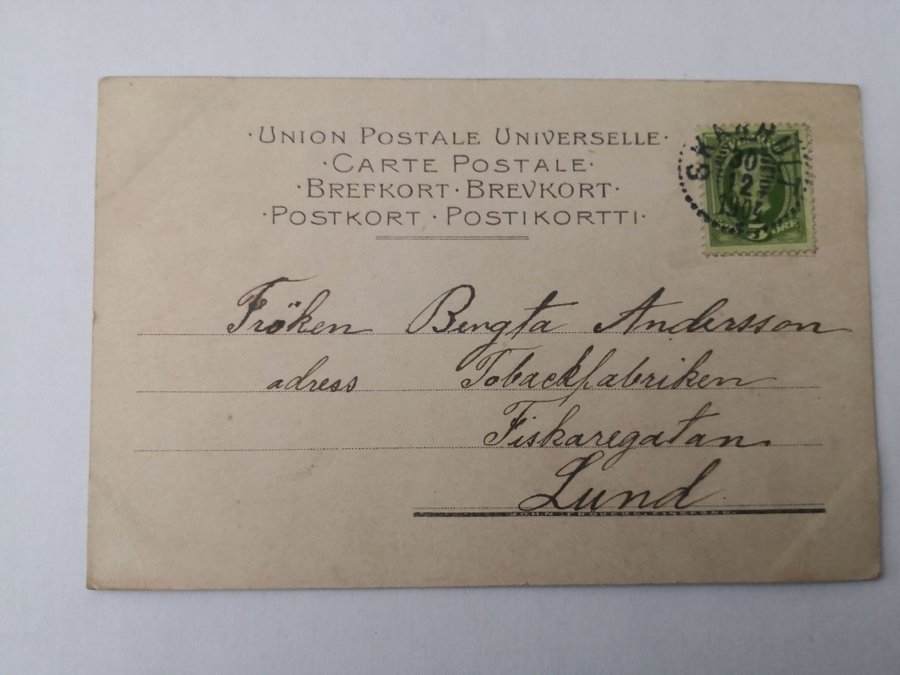 ·UNION POSTALE UNIVERSELLE·
·CARTE POSTALE·
·BREFKORT·BREVKORT·
·POSTKORT·POSTIKORTTI·
SKARHULT
2
1904
5 ÖRE
Fröken Bengta Andersson
adress Tobackfabriken
Fiskaregatan
Lund
JOHN FRÖBERG, FINSPONG.